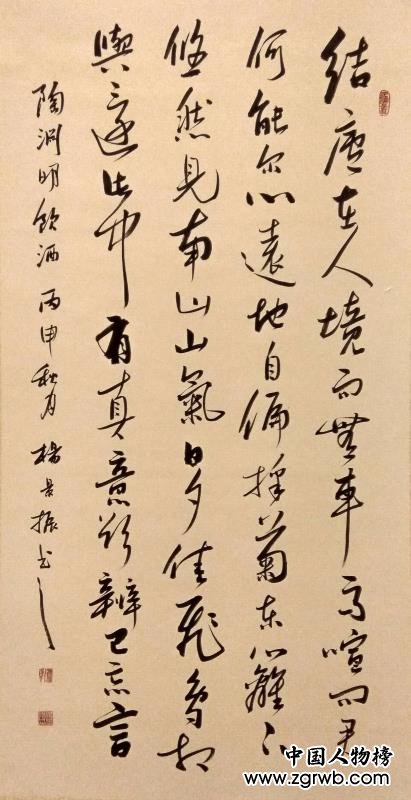 结庐在人境而無車马喧问君
何能尔心遠地自偏採菊东篱下
悠然見南山山氣日夕佳飛鸟相
與还此中有真意欲辨已忘言
陶渊明饮酒 丙申秋月 楊景振书
中国人物榜
www.zgrwb.com